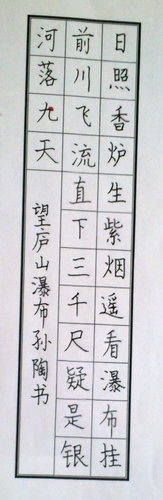 日照香炉生紫烟遥看瀑布挂
前川飞流直下三千尺疑是银
河落九天 望庐山瀑布孙陶书